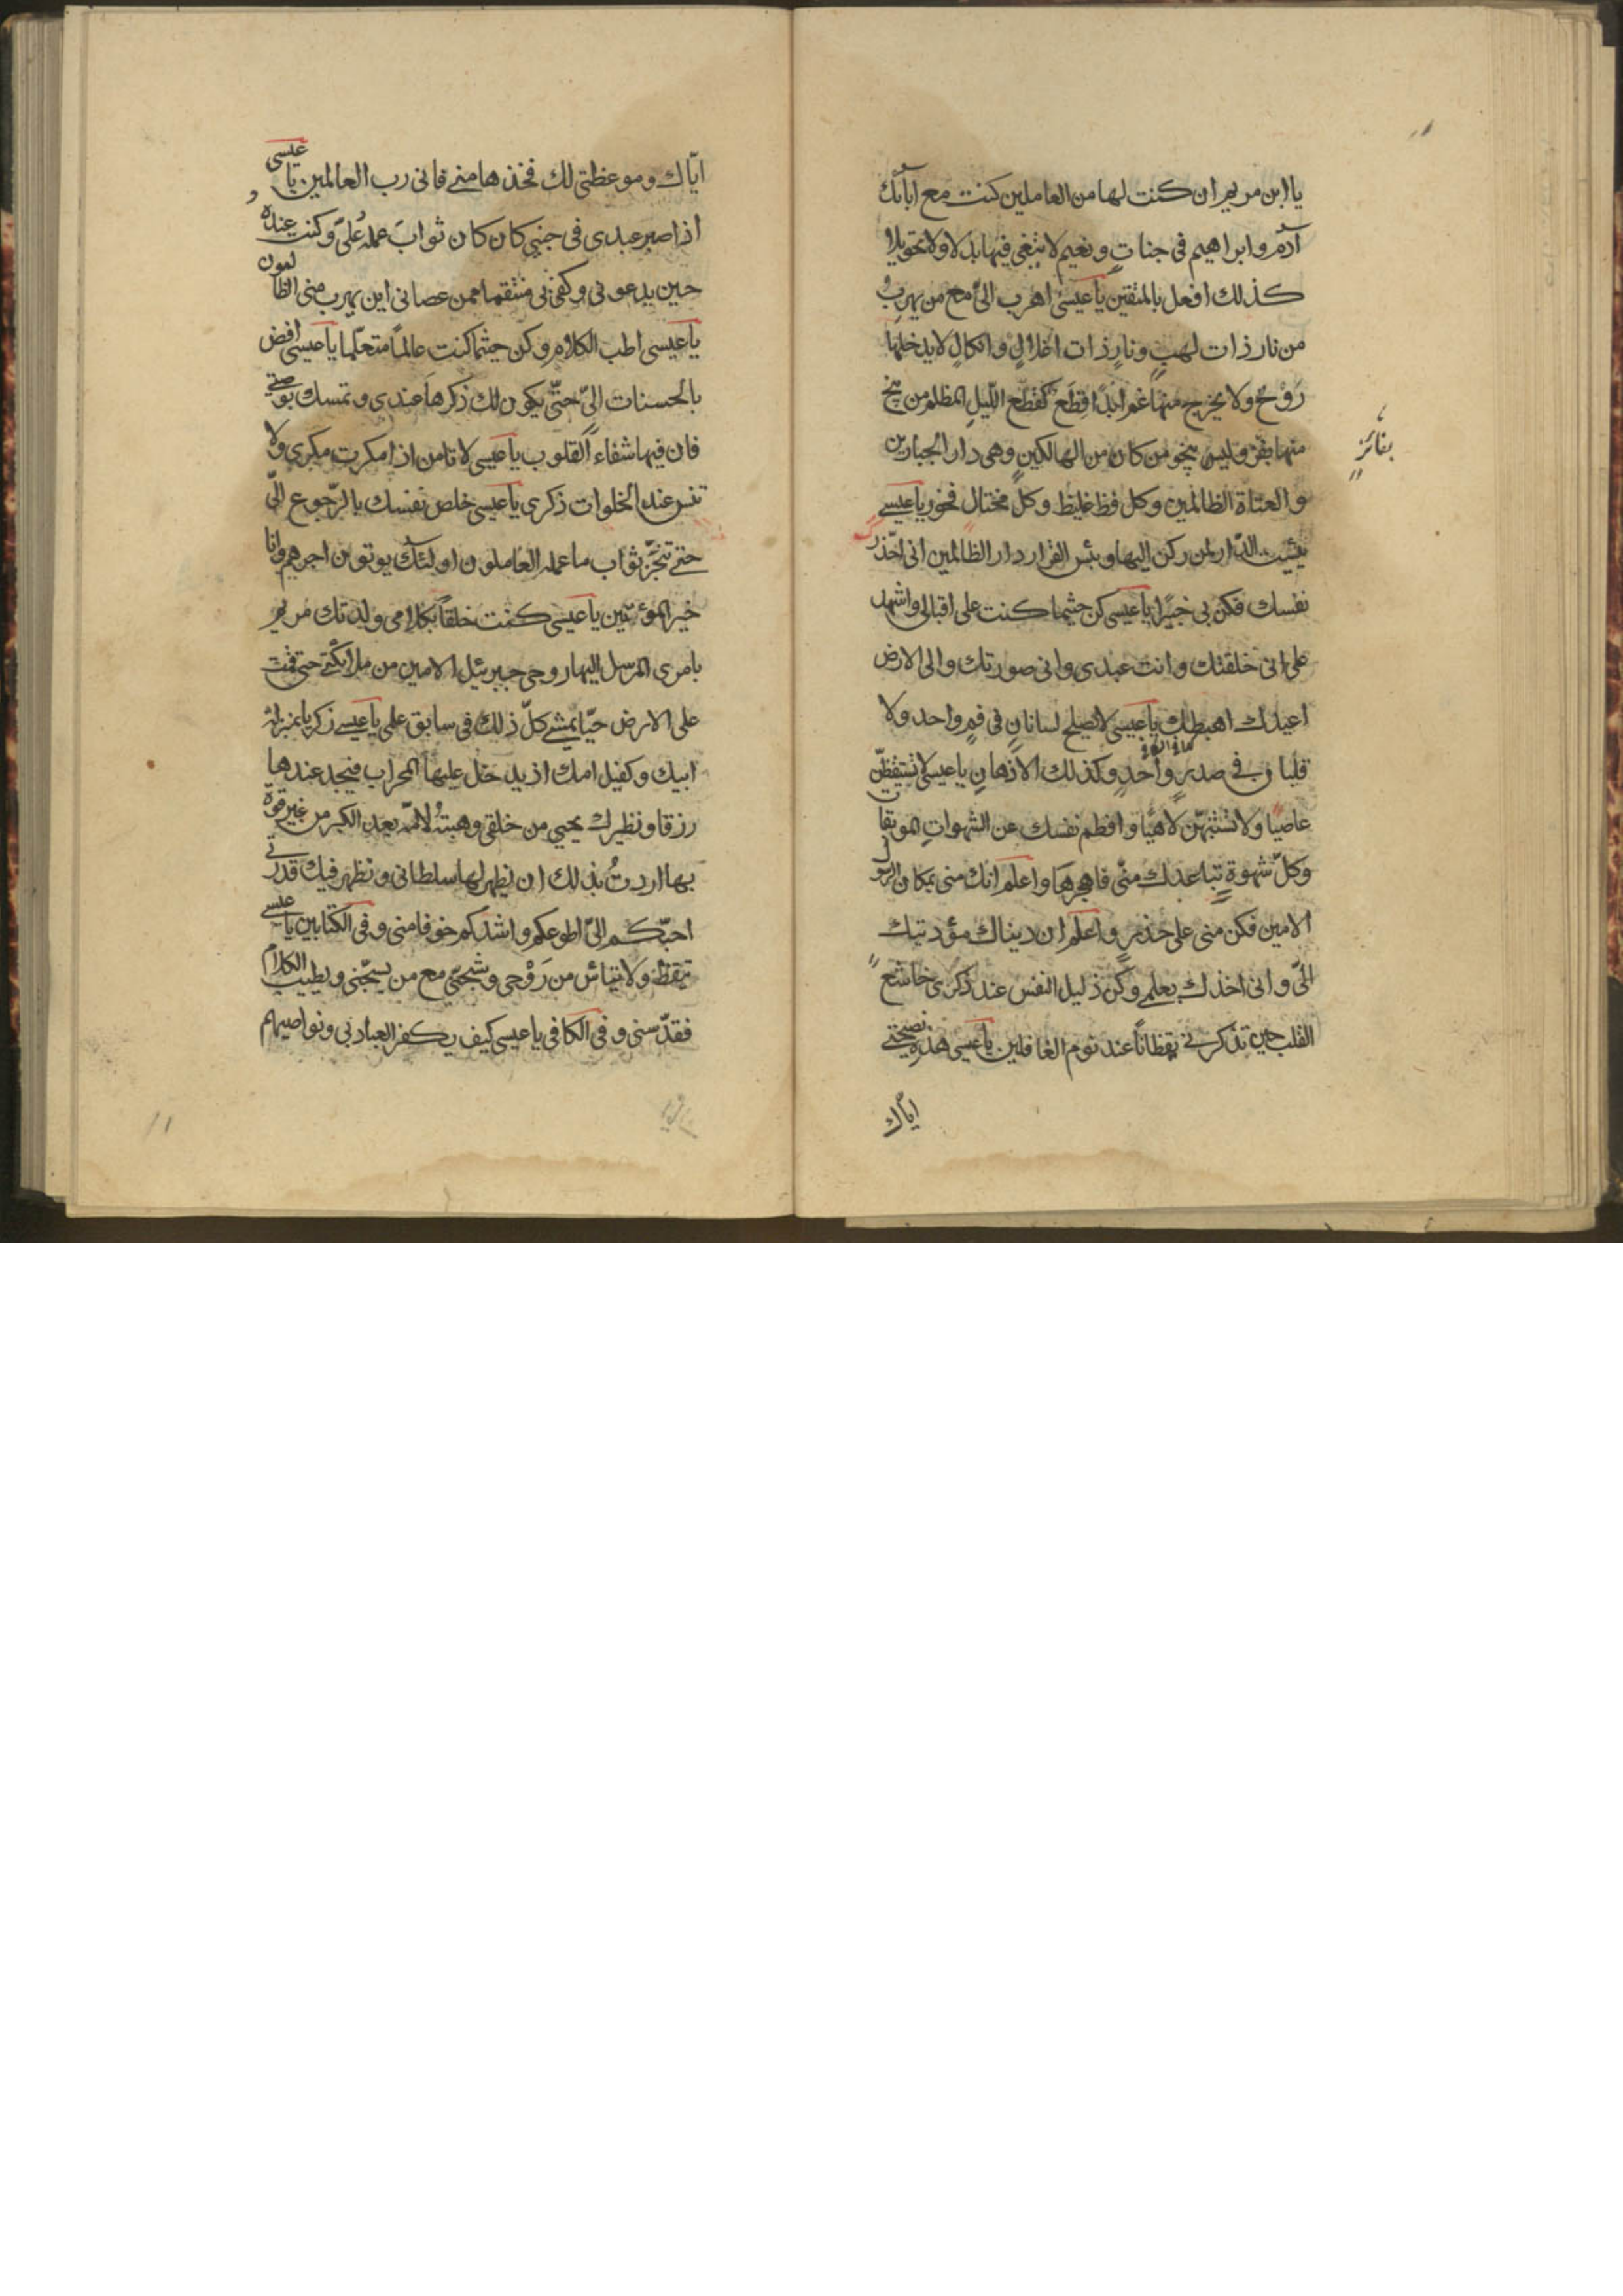 يا ابن مريم ان كنت لها من العاملين كنت مع آبائك
آدم وابراهيم فى جناتٍ ونعيم لا تبغى فيها بدلا ولا تحويلا
كذلك افعل بالمتقين يا عيسى اهرب الىّ مع من يهرب
من نار ذات لهبٍ ونارٍ ذات اغلالٍ وانكالٍ لا يدخلها
رَوْحٌ ولا يخرج منها غم ابدًا قِطَع كقطع اللّيل المظلم من ينج
منها يفز وليس ينجو من كان من الهالكين وهى دار الجبارين
بفائزٍ
والعتاة الظالمين وكل فظ غليظ وكلّ مختال فخور يا عيسى
بئست الدّار لمن ركن اليها وبئس القرار دار الظالمين انى احّذرك
نفسك فكن بى خبيرًا يا عيسى كن حيثما كنت على اقبالى واشهد
على انى خلقتك وانت عبدى وانى صورتك والى الارض
اعيدك اهبطك يا عيسى لا يصلح لسانان فى فمٍ واحد ولا
قلبان فى صدرٍ واحدٍ وكذلك الاذهان يا عيسى لا تستيقظنّ
عاصيًا ولا تستنبهنّ لاهيًا وافطم نفسك عن الشهواتِ الموبقات
وكلّ شهوةٍ تباعدك منّى فاهجرها واعلم انك منى بمكان الرسول
الامين فكن منى على حذرٍ واعلم ان دنياك مؤديتك
الىّ وانى اخذك بعلمى وكن ذليل النفس عند ذكرى خاشع
القلب حين تذكرنى يقظاناً عند نوم الغافلين يا عيسى هذه نصيحتى
ايّاك
ايّاك وموعظتى لك فخذها منى فانى رب العالمين يا عيسى
اذا صبر عبدى فى جنبى كان كان ثوابَ عمله عَلىّ وكنت عنده
حين يدعونى وكفى بى منتقما ممن عصانى اين يهرب منى الظالمون
يا عيسى اطب الكلام وكن حيثما كنت عالماً متعلّما يا عيسى افض
بالحسنات الىّ حتّى يكون لك ذكرها عندى وتمسك بوصيتى
فان فيها شفاء القلوب يا عيسى لا تامن اذا مكرت مكرى ولا
تنس عند الخلوات ذكرى يا عيسى خلص نفسك بالرّجوع الىّ
حتى تنجّز ثواب ما عمله العاملون اولئك يوتون اجرهم وانا
خير المؤتين يا عيسى كنت خلقاً بكلامى ولدتك مريم
بامرى المرسل اليها روحى جبرئيل الامين من ملائكتى حتى قمت
على الارض حيّا تمشى كلّ ذلك فى سابق علمى يا عيسى زكريا بمنزلة
ابيك وكفيل امك اذ يدخل عليها المحراب فيجد عندها
رزقا ونظيرك يحيى من خلقى وهبتُه لامّه بعد الكبر من غير قوة
بها اردتُ بذلك ان يظهر لها سلطانى ونظهر فيك قدرتى
احبّكم الىّ اطوعكم واشدكم خوفا منى وفى الكتابين يا عيسى
تيقظ ولا تيائس من رَوْحى وسبّحنى مع من يسبّحنى وبطيب الكلام
فقدّسنى وفى الكافى يا عيسى كيف يكفر العباد بى ونواصيهم